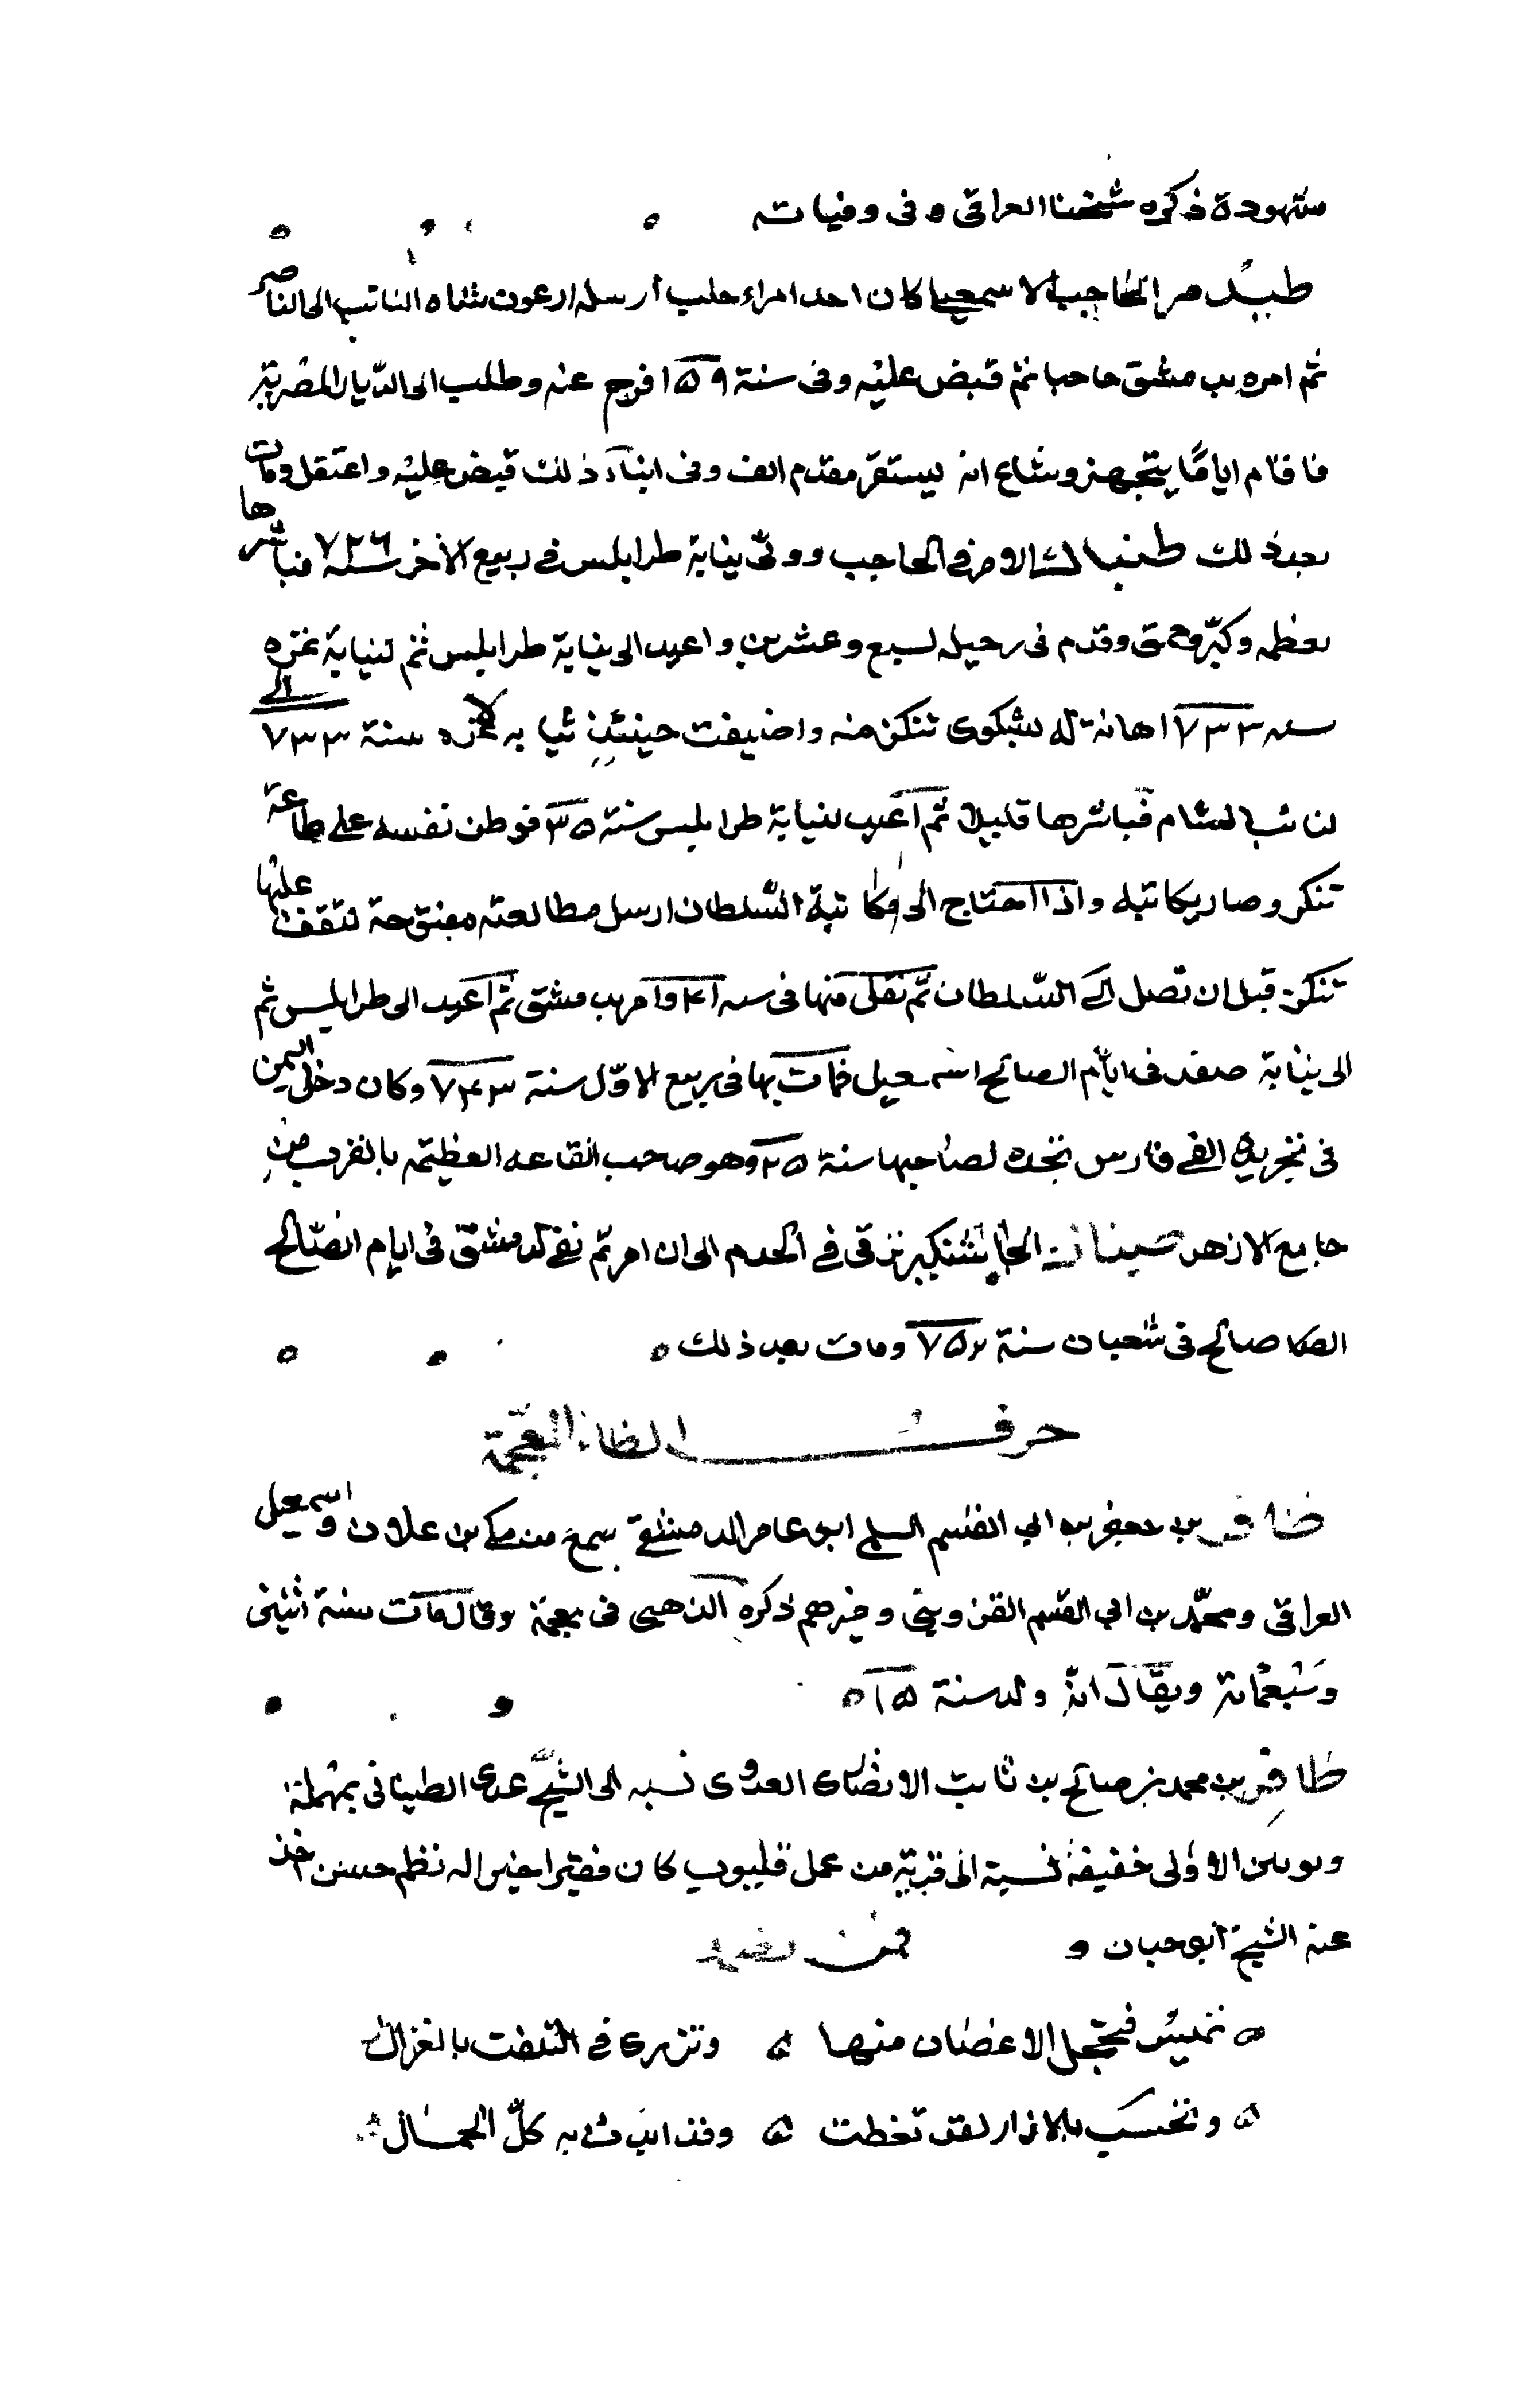 مشهودة ذكره شيخنا العراقى و فى وفياته
طيدمر الحاجب الاسمعيلى كان احد امراء حلب أرسله ارغون شاه النائب الى الناصر
ثم امره بدمشق حاجبا ثم قبض عليه وفى سنة ٥٩ افرج عنه وطلب الى الديار المصرية
فاقام اياما يتجهز وشاع انه يستقر مقدم الف وفى اثناء ذلك قبض عليه واعتقل ومات
بعد ذلك طينال الاشرفى الحاجب وولى نيابة طرابلس فى ربيع الآخر سنة ٧٢٦ فباشرها
بعظمه وكبر وحمق وقدم فى رحيله لسبع وعشرين واعيد الى نيابة طرابلس ثم لنيابة غزه
سنه ٧٣٣ اهانة له لشكوى تنكز منه واضيفت حينئذ نيابه غزه سنة ٧٣٣ الى
نائب الشام فباشرها قليلا ثم اعيد لنيابة طرابلس سنة ٣٥ فوطن نفسه على طاعة
تنكز وصار يكاتبه واذا احتاج الى مكاتبة السلطان ارسل مطالعته مفتوحة لتقف عليها
تنكز قبل ان تصل الى السلطان ثم نقل منها فى سنه ٤١ وامر بدمشق ثم اعيد الى طرابلس ثم
الى نيابة صفد فى ايام الصالح اسمعيل فمات بها فى ربيع الاول سنة ٧٤٣ وكان دخل اليمن
فى تجريدة الفى فارس نجده لصاحبها سنة ٢٥ وهو صاحب القاعه العظيمه بالقرب من
جامع الازهر الجاشنكير ترقى فى الخدم الى ان امر ثم نفى لدمشق فى ايام الصالح
صالح فى شعبان سنة ٧٥٢ ومات بعد ذلك
حرف الظاء المعجمة
ظافر بن جعفر بن ابى القسم السلمى ابو عامر الدمشقى سمع من مكى بن علان واسمعيل
العراقى ومحمد بن ابى القسم القزوينى وغيرهم ذكره الذهبى فى معجمة وقال مات سنة اثنين
وسبعمائة ويقال انه ولد سنة ١٥
ظافر بن محمد بن صالح بن ثابت الانصارى العدوى نسبه الى الشيخ عدى الطينانى بمهملة
ونونين الاولى خفيفة نسبة الى قرية من عمل قليوب كان فقيرا خيرا له نظم حسن اخذ
عنه الشيخ ابو حيان و فمن
تميس فتخجل الاغصان منها وتزرى فى التلفت بالغزال
وتحسب بالازار لقد تغطت وقد ابدت به كل الجمال